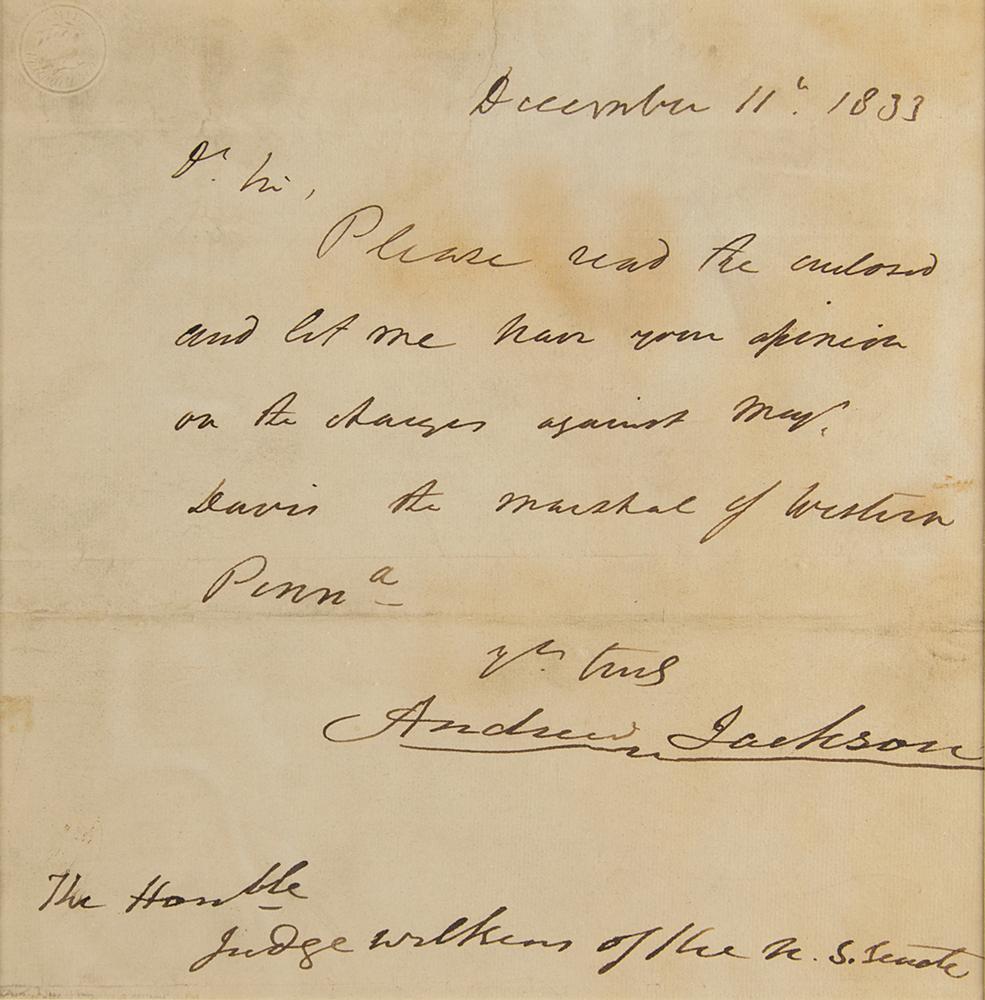 December 11th. 1833
Dr. Sir,
Please read the enclosed
and let me have your opinion
on the charges against Majr.
Davis the marshal of Western
Penna
yrs. truly
Andrew Jackson
The Honble
Judge Wilkins of the U. S. Senate